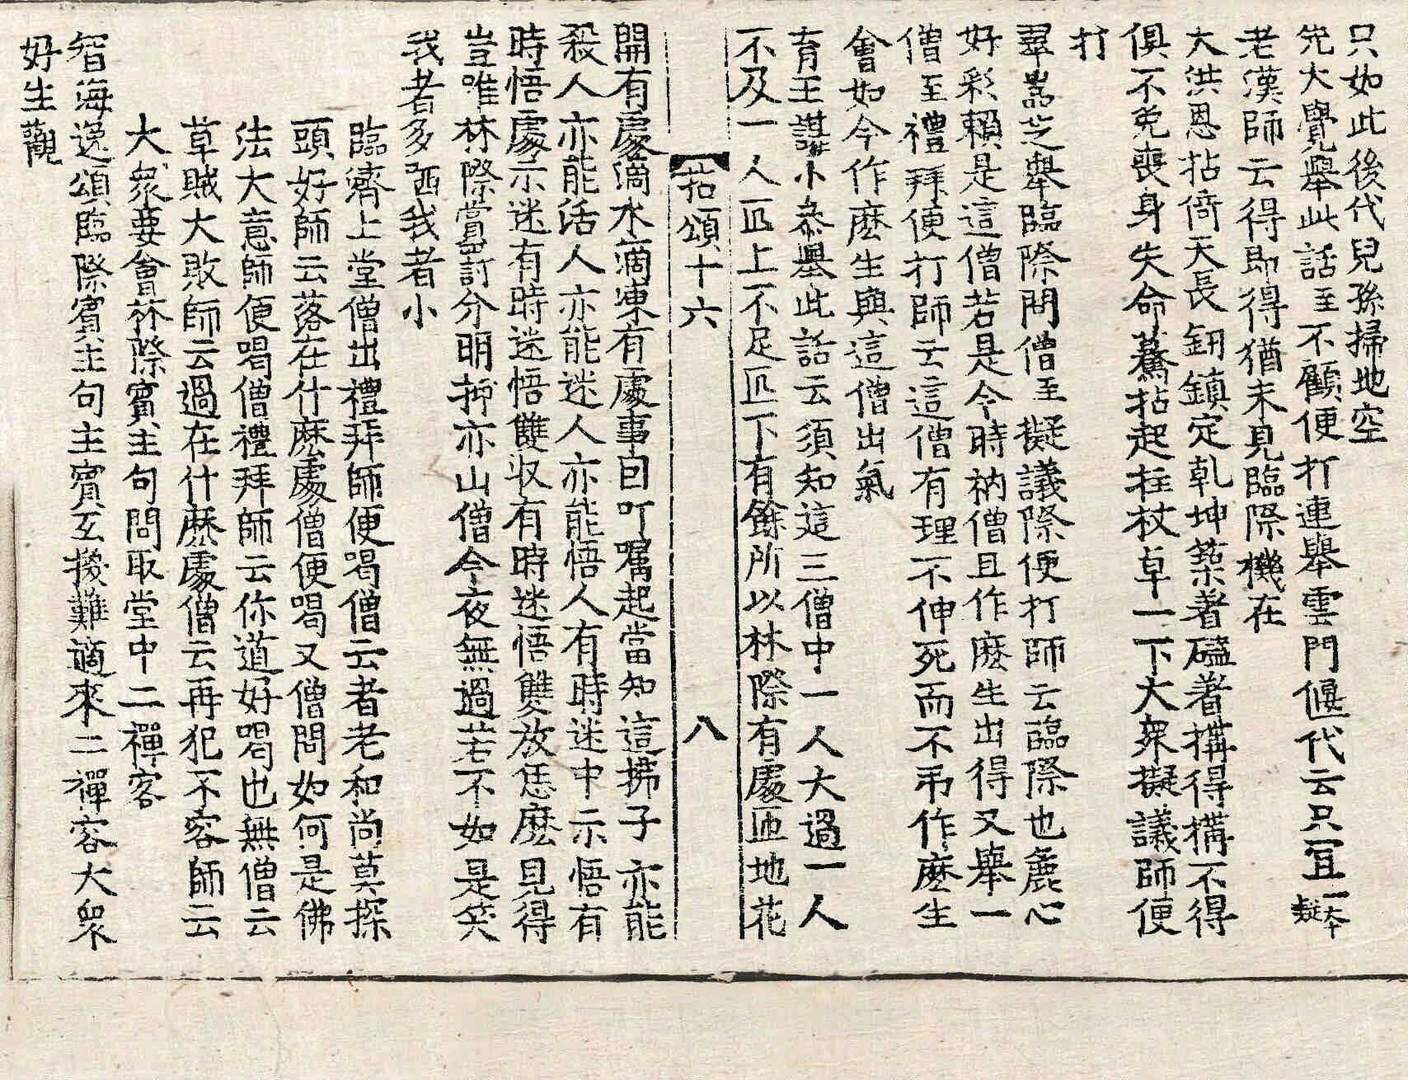 只如此後代兒孫掃地空
先大覺舉此話至不顧便打連舉雲門偃代云只宜一大擬
老漢師云得即得猶未見臨際機在
大洪恩拈倚天長劒鎮定乾坤築著磕著搆得搆不得
俱不免喪身失命驀拈起拄杖卓一下大衆擬議師便
打
翠嵓芝舉臨際問僧至擬議際便打師云臨際也麁心
好彩賴是這僧若是今時衲僧且作麽生出得又舉一
僧至禮拜便打師云這僧有理不伸死而不弔作麽生
會如今作麽生與這僧出氣
育王諶小叅舉此話云須知這三僧中一人大過一人
不及一人匹上不足匹下有餘所以林際有處匝地花
拈頌十六 八
開有處滴水滴凍有處事囙叮嘱起當知這拂子亦能
殺人亦能活人亦能迷人亦能悟人有時迷中示悟有
時悟處示迷有時迷悟雙収有時迷悟雙放恁麽見得
豈唯林際當訂分明抑亦山僧今夜無過若不如是笑
我者多哂我者小
臨濟上堂僧出禮拜師便喝僧云者老和尚莫探
頭好師云落在什麽處僧便喝又僧問如何是佛
法大意師便喝僧禮拜師云你道好喝也無僧云
草賊大敗師云過在什麽處僧云再犯不容師云
大衆要會林際賓主句問取堂中二禪客
智海逸頌臨際賓主句主賓互換難適來二禪客大衆
好生觀